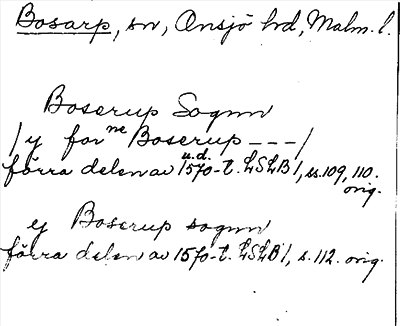 Bosarp, sn, Onsjö hd, Malm. l.
Boserup Sognn
/ y for ne Boserup --- /
förra delen av u.d. 1570-t. LSLB 1, ss. 109, 110. orig.
y Boserup sognn
förra delen av 1570-t. LSLB 1, s. 112. orig.